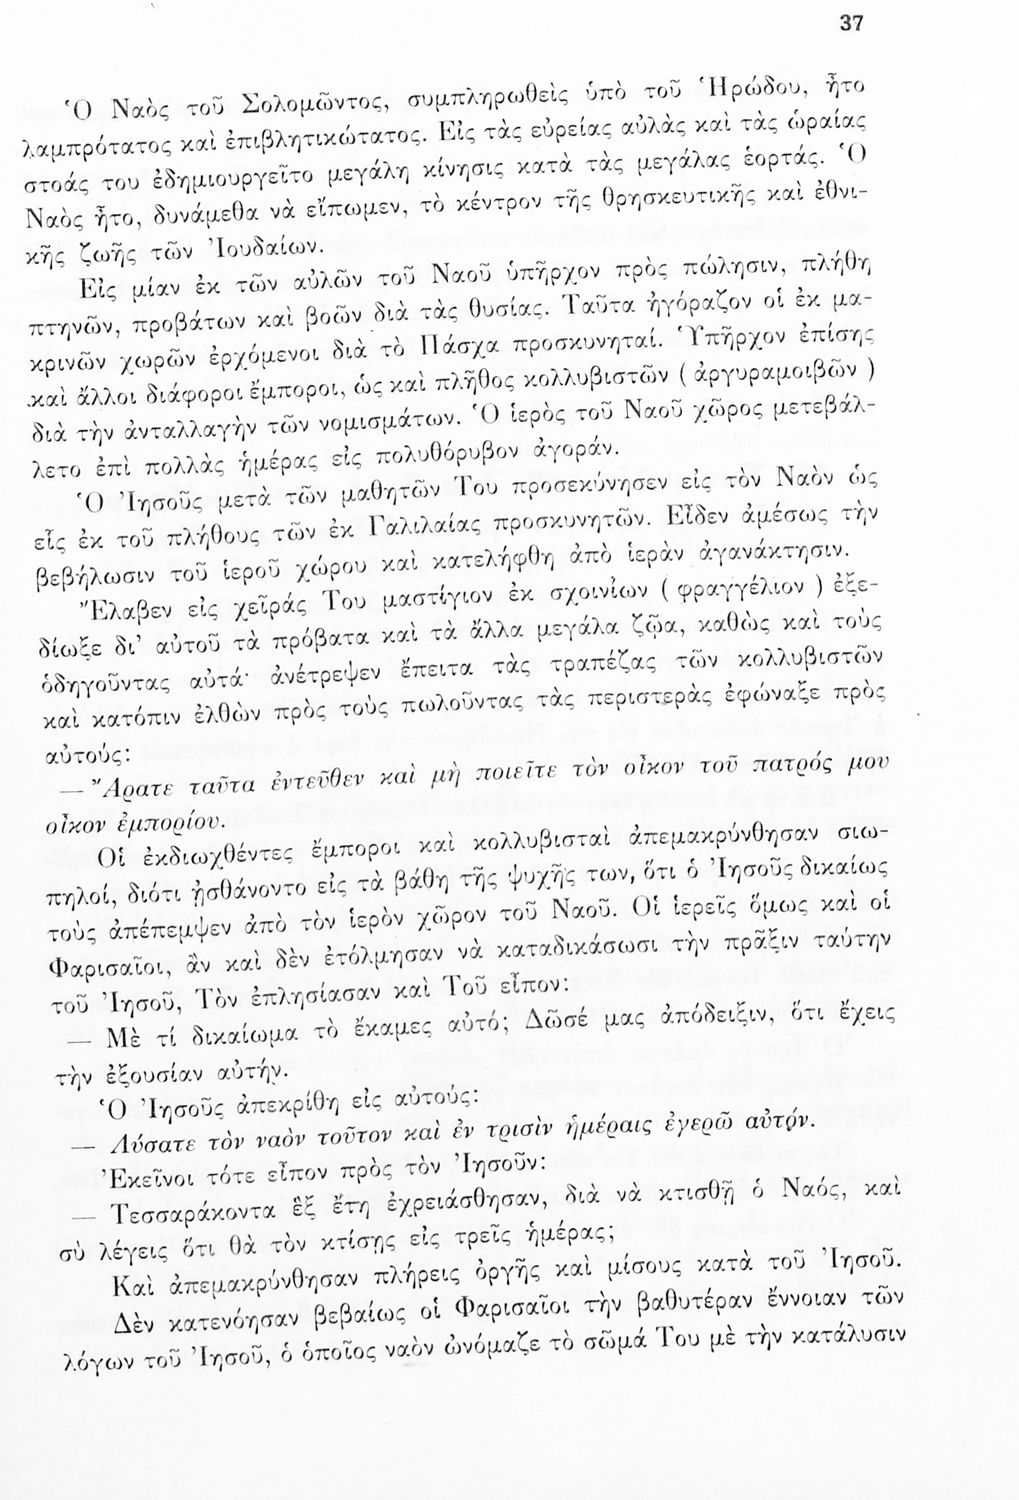 37
Ὁ Ναὸς τοῦ Σολομῶντος, συμπληρωθεὶς ὑπὸ τοῦ Ἡρώδου, ἦτο
λαμπρότατος καὶ ἐπιβλητικώτατος. Εἰς τὰς εὐρείας αὐλὰς καὶ τὰς ὡραίας
στοάς του ἐδημιουργεῖτο μεγάλη κίνησις κατὰ τὰς μεγάλας ἑορτάς. Ὁ
Ναὸς ἦτο, δυνάμεθα νὰ εἴπωμεν, τὸ κέντρον τῆς θρησκευτικῆς καὶ ἐθνι-
κῆς ζωῆς τῶν Ἰουδαίων.
Εἰς μίαν ἐκ τῶν αὐλῶν τοῦ Ναοῦ ὑπῆρχον πρὸς πώλησιν, πλήθη
πτηνῶν, προβάτων καὶ βοῶν διὰ τὰς θυσίας. Ταῦτα ἠγόραζον οἱ ἐκ μα-
κρινῶν χωρῶν ἐρχόμενοι διὰ τὸ Πάσχα προσκυνηταί. Ὑπῆρχον ἐπίσης
καὶ ἄλλοι διάφοροι ἔμποροι, ὡς καὶ πλῆθος κολλυβιστῶν ( ἀργυραμοιβῶν )
διὰ τὴν ἀνταλλαγὴν τῶν νομισμάτων. Ὁ ἱερὸς τοῦ Ναοῦ χῶρος μετεβάλ-
λετο ἐπὶ πολλὰς ἡμέρας εἰς πολυθόρυβον ἀγοράν.
Ὁ Ἰησοῦς μετὰ τῶν μαθητῶν Του προσεκύνησεν εἰς τὸν Ναὸν ὡς
εἷς ἐκ τοῦ πλήθους τῶν ἐκ Γαλιλαίας προσκυνητῶν. Εἶδεν ἀμέσως τὴν
βεβήλωσιν τοῦ ἱεροῦ χώρου καὶ κατελήφθη ἀπὸ ἱερὰν ἀγανάκτησιν.
Ἔλαβεν εἰς χεῖράς Του μαστίγιον ἐκ σχοινίων ( φραγγέλιον ) ἐξε-
δίωξε δι' αὐτοῦ τὰ πρόβατα καὶ τὰ ἄλλα μεγάλα ζῷα, καθὼς καὶ τοὺς
ὁδηγοῦντας αὐτά· ἀνέτρεψεν ἔπειτα τὰς τραπέζας τῶν κολλυβιστῶν
καὶ κατόπιν ἐλθὼν πρὸς τοὺς πωλοῦντας τὰς περιστερὰς ἐφώναξε πρὸς
αὐτούς:
— Ἄρατε ταῦτα ἐντεῦθεν καὶ μὴ ποιεῖτε τὸν οἶκον τοῦ πατρός μου
οἶκον ἐμπορίου.
Οἱ ἐκδιωχθέντες ἔμποροι καὶ κολλυβισταὶ ἀπεμακρύνθησαν σιω-
πηλοί, διότι ᾐσθάνοντο εἰς τὰ βάθη τῆς ψυχῆς των, ὅτι ὁ Ἰησοῦς δικαίως
τοὺς ἀπέπεμψεν ἀπὸ τὸν ἱερὸν χῶρον τοῦ Ναοῦ. Οἱ ἱερεῖς ὅμως καὶ οἱ
Φαρισαῖοι, ἂν καὶ δὲν ἐτόλμησαν νὰ καταδικάσωσι τὴν πρᾶξιν ταύτην
τοῦ Ἰησοῦ, Τὸν ἐπλησίασαν καὶ Τοῦ εἶπον:
— Μὲ τί δικαίωμα τὸ ἔκαμες αὐτό; Δῶσέ μας ἀπόδειξιν, ὅτι ἔχεις
τὴν ἐξουσίαν αὐτήν.
Ὁ Ἰησοῦς ἀπεκρίθη εἰς αὐτούς:
— Λύσατε τὸν ναὸν τοῦτον καὶ ἐν τρισὶν ἡμέραις ἐγερῶ αὐτόν.
Ἐκεῖνοι τότε εἶπον πρὸς τὸν Ἰησοῦν:
— Τεσσαράκοντα ἓξ ἔτη ἐχρειάσθησαν, διὰ νὰ κτισθῇ ὁ Ναός, καὶ
σὺ λέγεις ὅτι θὰ τὸν κτίσῃς εἰς τρεῖς ἡμέρας;
Καὶ ἀπεμακρύνθησαν πλήρεις ὀργῆς καὶ μίσους κατὰ τοῦ Ἰησοῦ.
Δὲν κατενόησαν βεβαίως οἱ Φαρισαῖοι τὴν βαθυτέραν ἔννοιαν τῶν
λόγων τοῦ Ἰησοῦ, ὁ ὁποῖος ναὸν ὠνόμαζε τὸ σῶμά Του μὲ τὴν κατάλυσιν